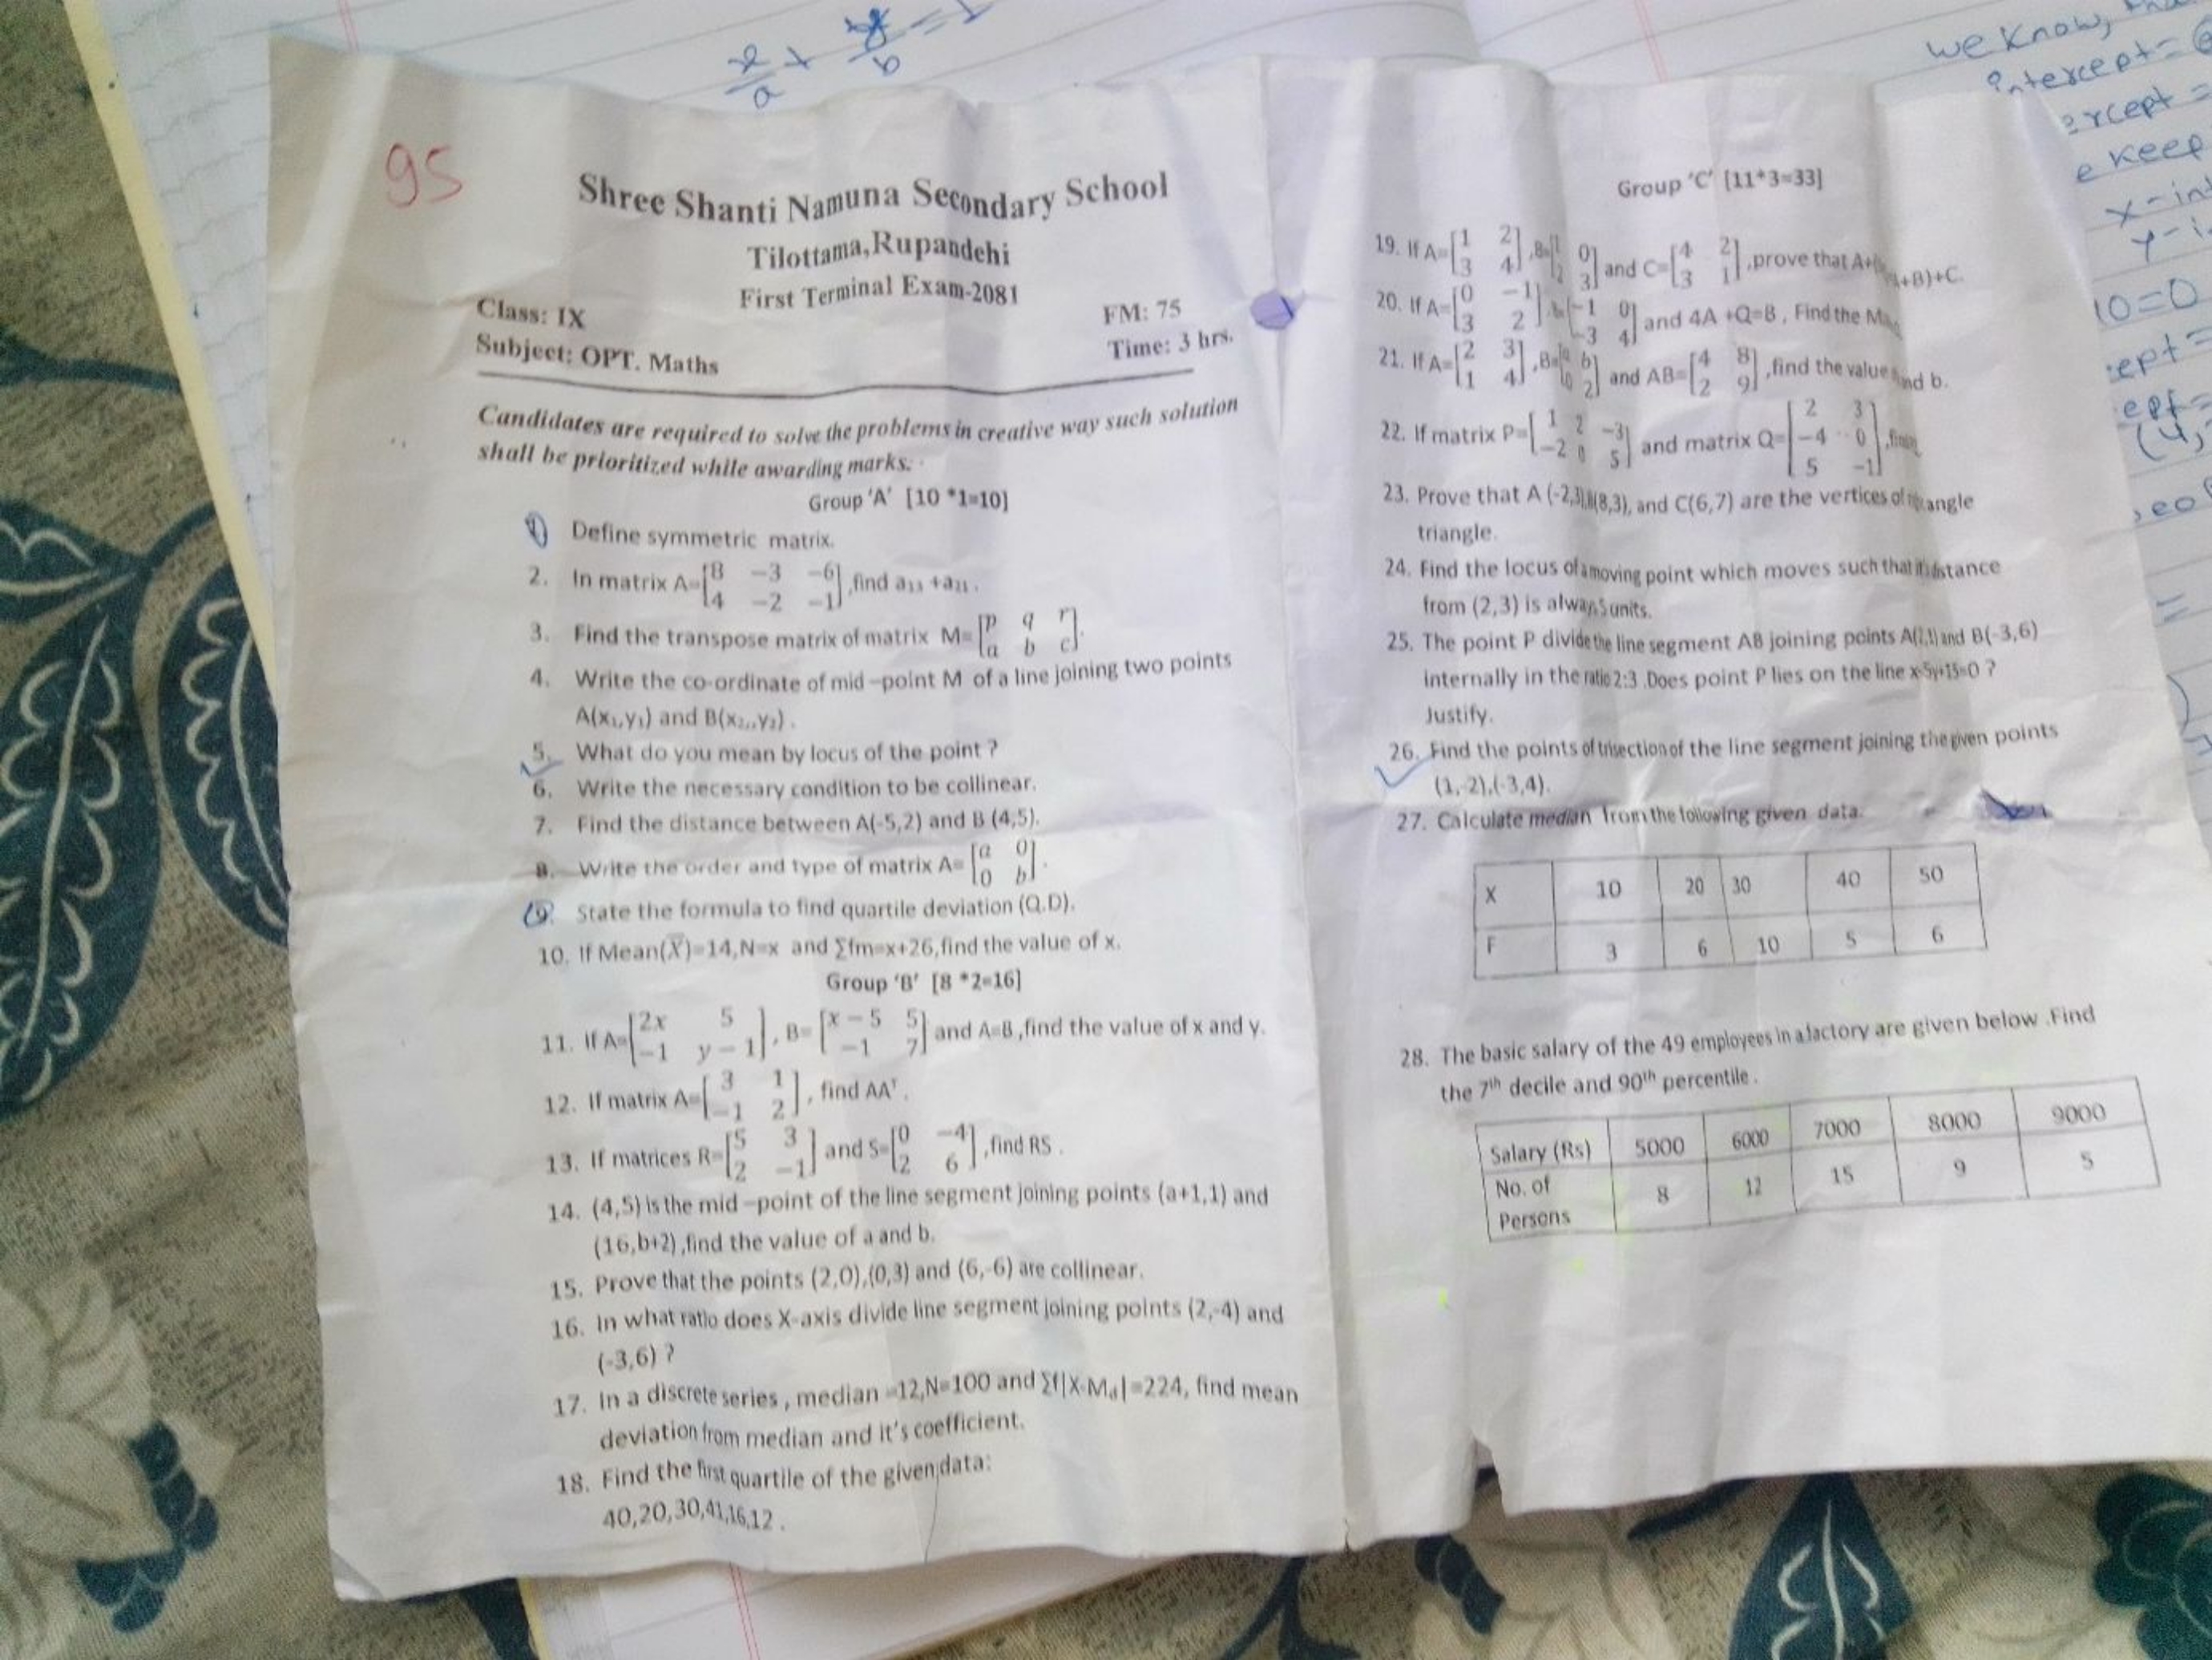 x/a + y/b = 1
we know,
intercept =
ercept =
e keep
x-int
y-i
10=0
ept =
ept =
(4,
95
Shree Shanti Namuna Secondary School
Tilottama,Rupandehi
First Terminal Exam-2081
Class: IX
FM: 75
Subject: OPT. Maths
Time: 3 hrs.
Candidates are required to solve the problems in creative way such solution
shall be prioritized while awarding marks.
Group 'A' [10 *1=10]
1. Define symmetric matrix.
2. In matrix A=[8 -3 -6; 4 -2 -1] ,find a₁₃ +a₂₁ .
3. Find the transpose matrix of matrix M= [p q r; a b c].
4. Write the co-ordinate of mid -point M of a line joining two points
A(x₁,y₁) and B(x₂,,y₂) .
5. What do you mean by locus of the point ?
6. Write the necessary condition to be collinear.
7. Find the distance between A(-5,2) and B (4,5).
8. Write the order and type of matrix A= [a 0; 0 b] .
9. State the formula to find quartile deviation (Q.D).
10. If Mean(X̄)=14,N=x and ∑fm=x+26,find the value of x.
Group 'B' [8 *2=16]
11. If A=[2x 5; -1 y-1] , B= [x-5 5; -1 7] and A=B ,find the value of x and y.
12. If matrix A=[3 1; -1 2] , find AAᵀ .
13. If matrices R=[5 3; 2 -1] and S=[0 -4; 2 6] ,find RS .
14. (4,5) is the mid -point of the line segment joining points (a+1,1) and
(16,b+2) ,find the value of a and b.
15. Prove that the points (2,0),(0,3) and (6,-6) are collinear.
16. In what ratio does X-axis divide line segment joining points (2,-4) and
(-3,6) ?
17. In a discrete series , median =12,N=100 and ∑f|X-Md|=224, find mean
deviation from median and it's coefficient.
18. Find the first quartile of the given data:
40,20,30,41,16,12 .
Group 'C' [11*3=33]
19. If A=[1 2; 3 4] ,B=[1 0; 2 3] and C=[4 2; 3 1] ,prove that A+ +B)+C.
20. If A=[0 -1; 3 2] [-1 0; -3 4] and 4A +Q=B , Find the
21. If A=[2 3; 1 4] ,B=[a b; 0 2] and AB=[4 8; 2 9] ,find the value and b.
22. If matrix P=[1 2 -3; -2 0 5] and matrix Q=[2 3; -4 0; 5 -1]
23. Prove that A (-2,3),B(8,3), and C(6,7) are the vertices of angle
triangle.
24. Find the locus of a moving point which moves such that it distance
from (2,3) is always 5 units.
25. The point P divide the line segment AB joining points and B(-3,6)
internally in the ratio 2:3 .Does point P lies on the line x-5y+15=0 ?
Justify.
26. Find the points of trisection of the line segment joining the given points
(1,-2),(-3,4).
27. Calculate median from the following given data.
X 10 20 30 40 50
F 3 6 10 5 6
28. The basic salary of the 49 employees in a factory are given below .Find
the 7th decile and 90th percentile .
Salary (Rs) 5000 6000 7000 8000 9000
No. of 8 12 15 9 5
Persons